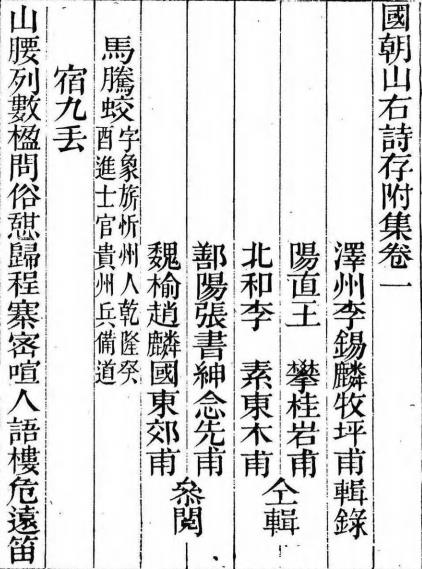 國朝山右詩存附集卷一
澤州李錫麟牧坪甫輯錄
陽直王　攀桂岩甫
北和李　素東木甫
仝輯
鄯陽張書紳念先甫
魏榆趙麟國東郊甫
叅閱
馬騰蛟字象旂忻州人乾隆癸
酉進士官貴州兵備道
宿九丟
山腰列數楹問俗憇歸程寨密喧人語樓危遠笛